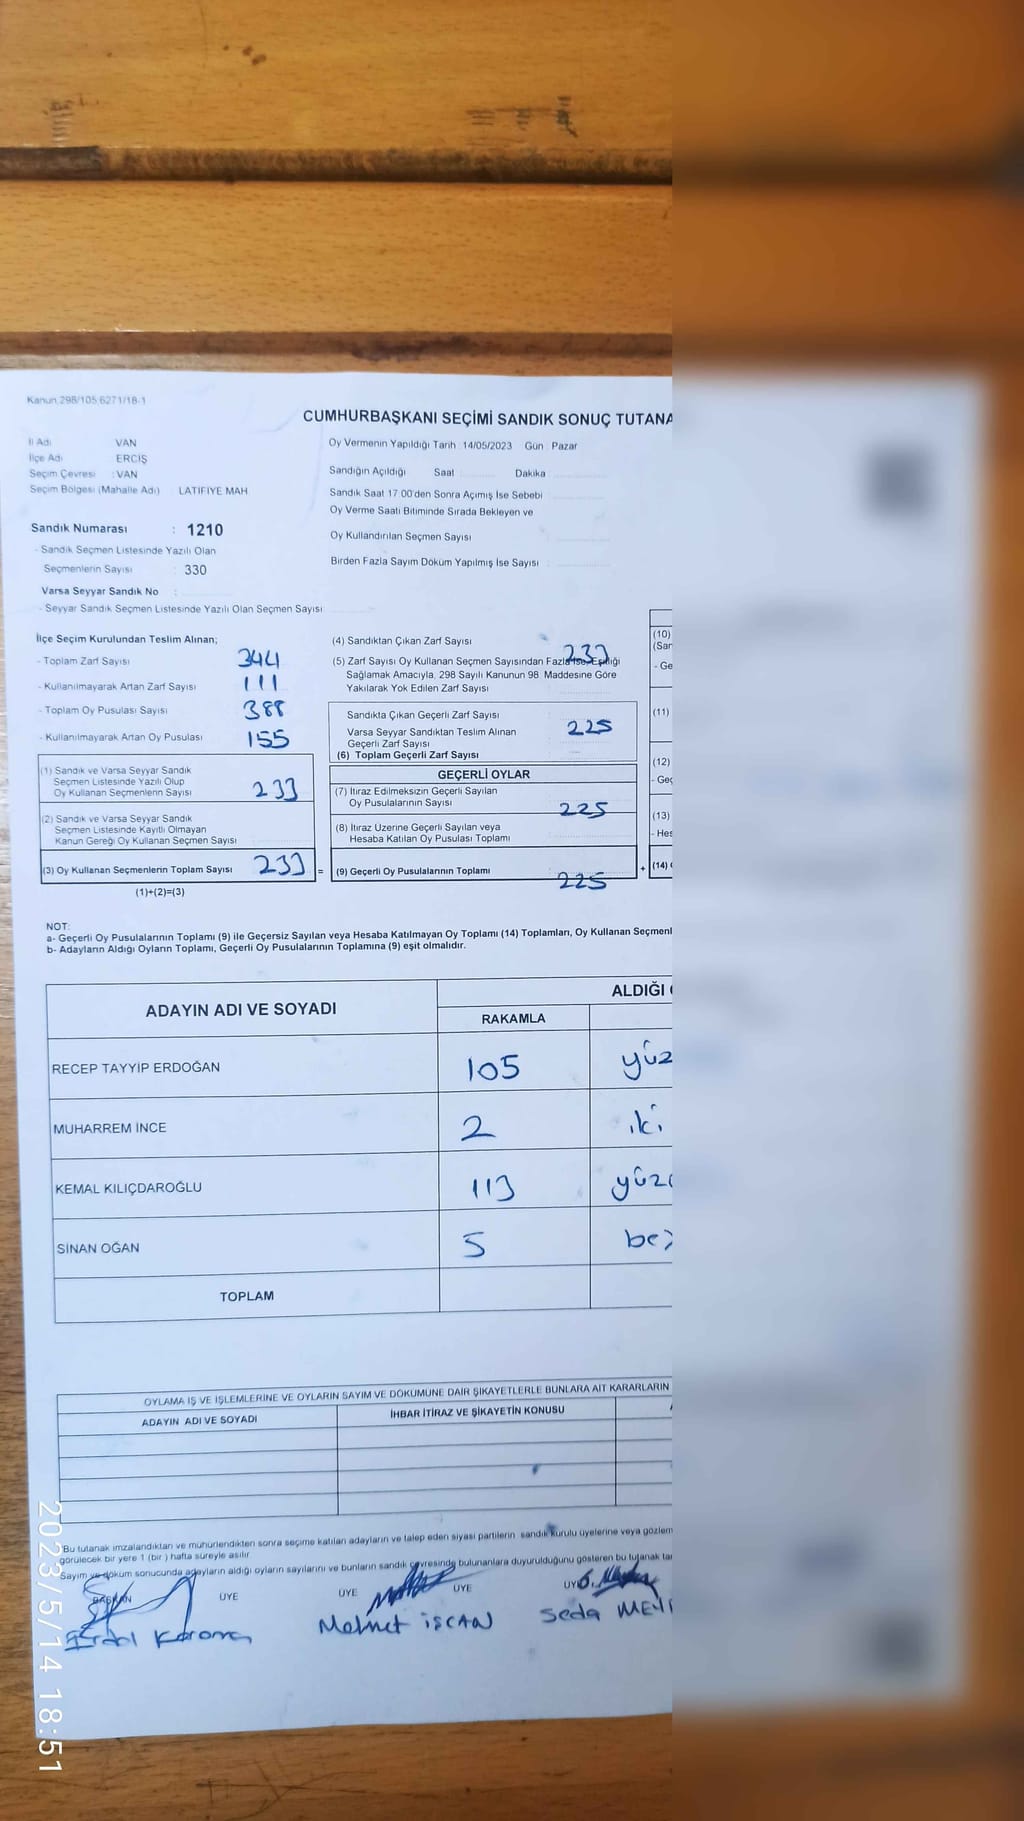 Kanun 298/105 6271/18-1
CUMHURBAŞKANI SEÇİMİ SANDIK SONUÇ TUTANA
İl Adı VAN
İlçe Adı ERCİŞ
Seçim Çevresi : VAN
Seçim Bölgesi (Mahalle Adı) LATİFİYE MAH
Oy Vermenin Yapıldığı Tarih 14/05/2023 Gün Pazar
Sandığın Açıldığı Saat Dakika
Sandık Saat 17 00'den Sonra Açımış İse Sebebi
Oy Verme Saati Bitiminde Sırada Bekleyen ve
Oy Kullandırılan Seçmen Sayısı
Birden Fazla Sayım Döküm Yapılmış İse Sayısı
Sandık Numarası : 1210
- Sandık Seçmen Listesinde Yazılı Olan
Seçmenlerin Sayısı : 330
Varsa Seyyar Sandık No :
- Seyyar Sandık Seçmen Listesinde Yazılı Olan Seçmen Sayısı
İlçe Seçim Kurulundan Teslim Alınan;
- Toplam Zarf Sayısı 344
- Kullanılmayarak Artan Zarf Sayısı 111
- Toplam Oy Pusulası Sayısı 388
- Kullanılmayarak Artan Oy Pusulası 155
(1) Sandık ve Varsa Seyyar Sandık
Seçmen Listesinde Yazılı Olup
Oy Kullanan Seçmenlerin Sayısı 233
(2) Sandık ve Varsa Seyyar Sandık
Seçmen Listesinde Kayıtlı Olmayan
Kanun Gereği Oy Kullanan Seçmen Sayısı
(3) Oy Kullanan Seçmenlerin Toplam Sayısı 233 =
(1)+(2)=(3)
(4) Sandıktan Çıkan Zarf Sayısı 233
(5) Zarf Sayısı Oy Kullanan Seçmen Sayısından Fazla İse, Eşitliği
Sağlamak Amacıyla, 298 Sayılı Kanunun 98 Maddesine Göre
Yakılarak Yok Edilen Zarf Sayısı
Sandıkta Çıkan Geçerli Zarf Sayısı
Varsa Seyyar Sandıktan Teslim Alınan 225
Geçerli Zarf Sayısı
(6) Toplam Geçerli Zarf Sayısı
GEÇERLİ OYLAR
(7) İtiraz Edilmeksizin Geçerli Sayılan
Oy Pusulalarının Sayısı 225
(8) İtiraz Üzerine Geçerli Sayılan veya
Hesaba Katılan Oy Pusulası Toplamı
(9) Geçerli Oy Pusulalarının Toplamı 225 +
(10)
(Sar
- Ge
(11)
(12)
- Geç
(13)
- Hes
(14)
NOT:
a- Geçerli Oy Pusulalarının Toplamı (9) ile Geçersiz Sayılan veya Hesaba Katılmayan Oy Toplamı (14) Toplamları, Oy Kullanan Seçmenl
b- Adayların Aldığı Oyların Toplamı, Geçerli Oy Pusulalarının Toplamına (9) eşit olmalıdır.
ADAYIN ADI VE SOYADI ALDIĞI
RAKAMLA
RECEP TAYYİP ERDOĞAN 105 yüz
MUHARREM İNCE 2 iki
KEMAL KILIÇDAROĞLU 113 yüz
SİNAN OĞAN 5 beş
TOPLAM
OYLAMA İŞ VE İŞLEMLERİNE VE OYLARIN SAYIM VE DÖKÜMÜNE DAİR ŞİKAYETLERLE BUNLARA AİT KARARLARIN
ADAYIN ADI VE SOYADI İHBAR İTİRAZ VE ŞİKAYETİN KONUSU
Bu tutanak imzalandıktan ve mühürlendikten sonra seçime katılan adayların ve talep eden siyasi partilerin sandık kurulu üyelerine veya gözlem
görülecek bir yere 1 (bir) hafta süreyle asılır
Sayım ve döküm sonucunda adayların aldığı oyların sayılarını ve bunların sandık çevresinde bulunanlara duyurulduğunu gösteren bu tutanak tar
BAŞKAN ÜYE ÜYE ÜYE ÜY
Mehmet İSCAN Seda
2023/5/14 18:51